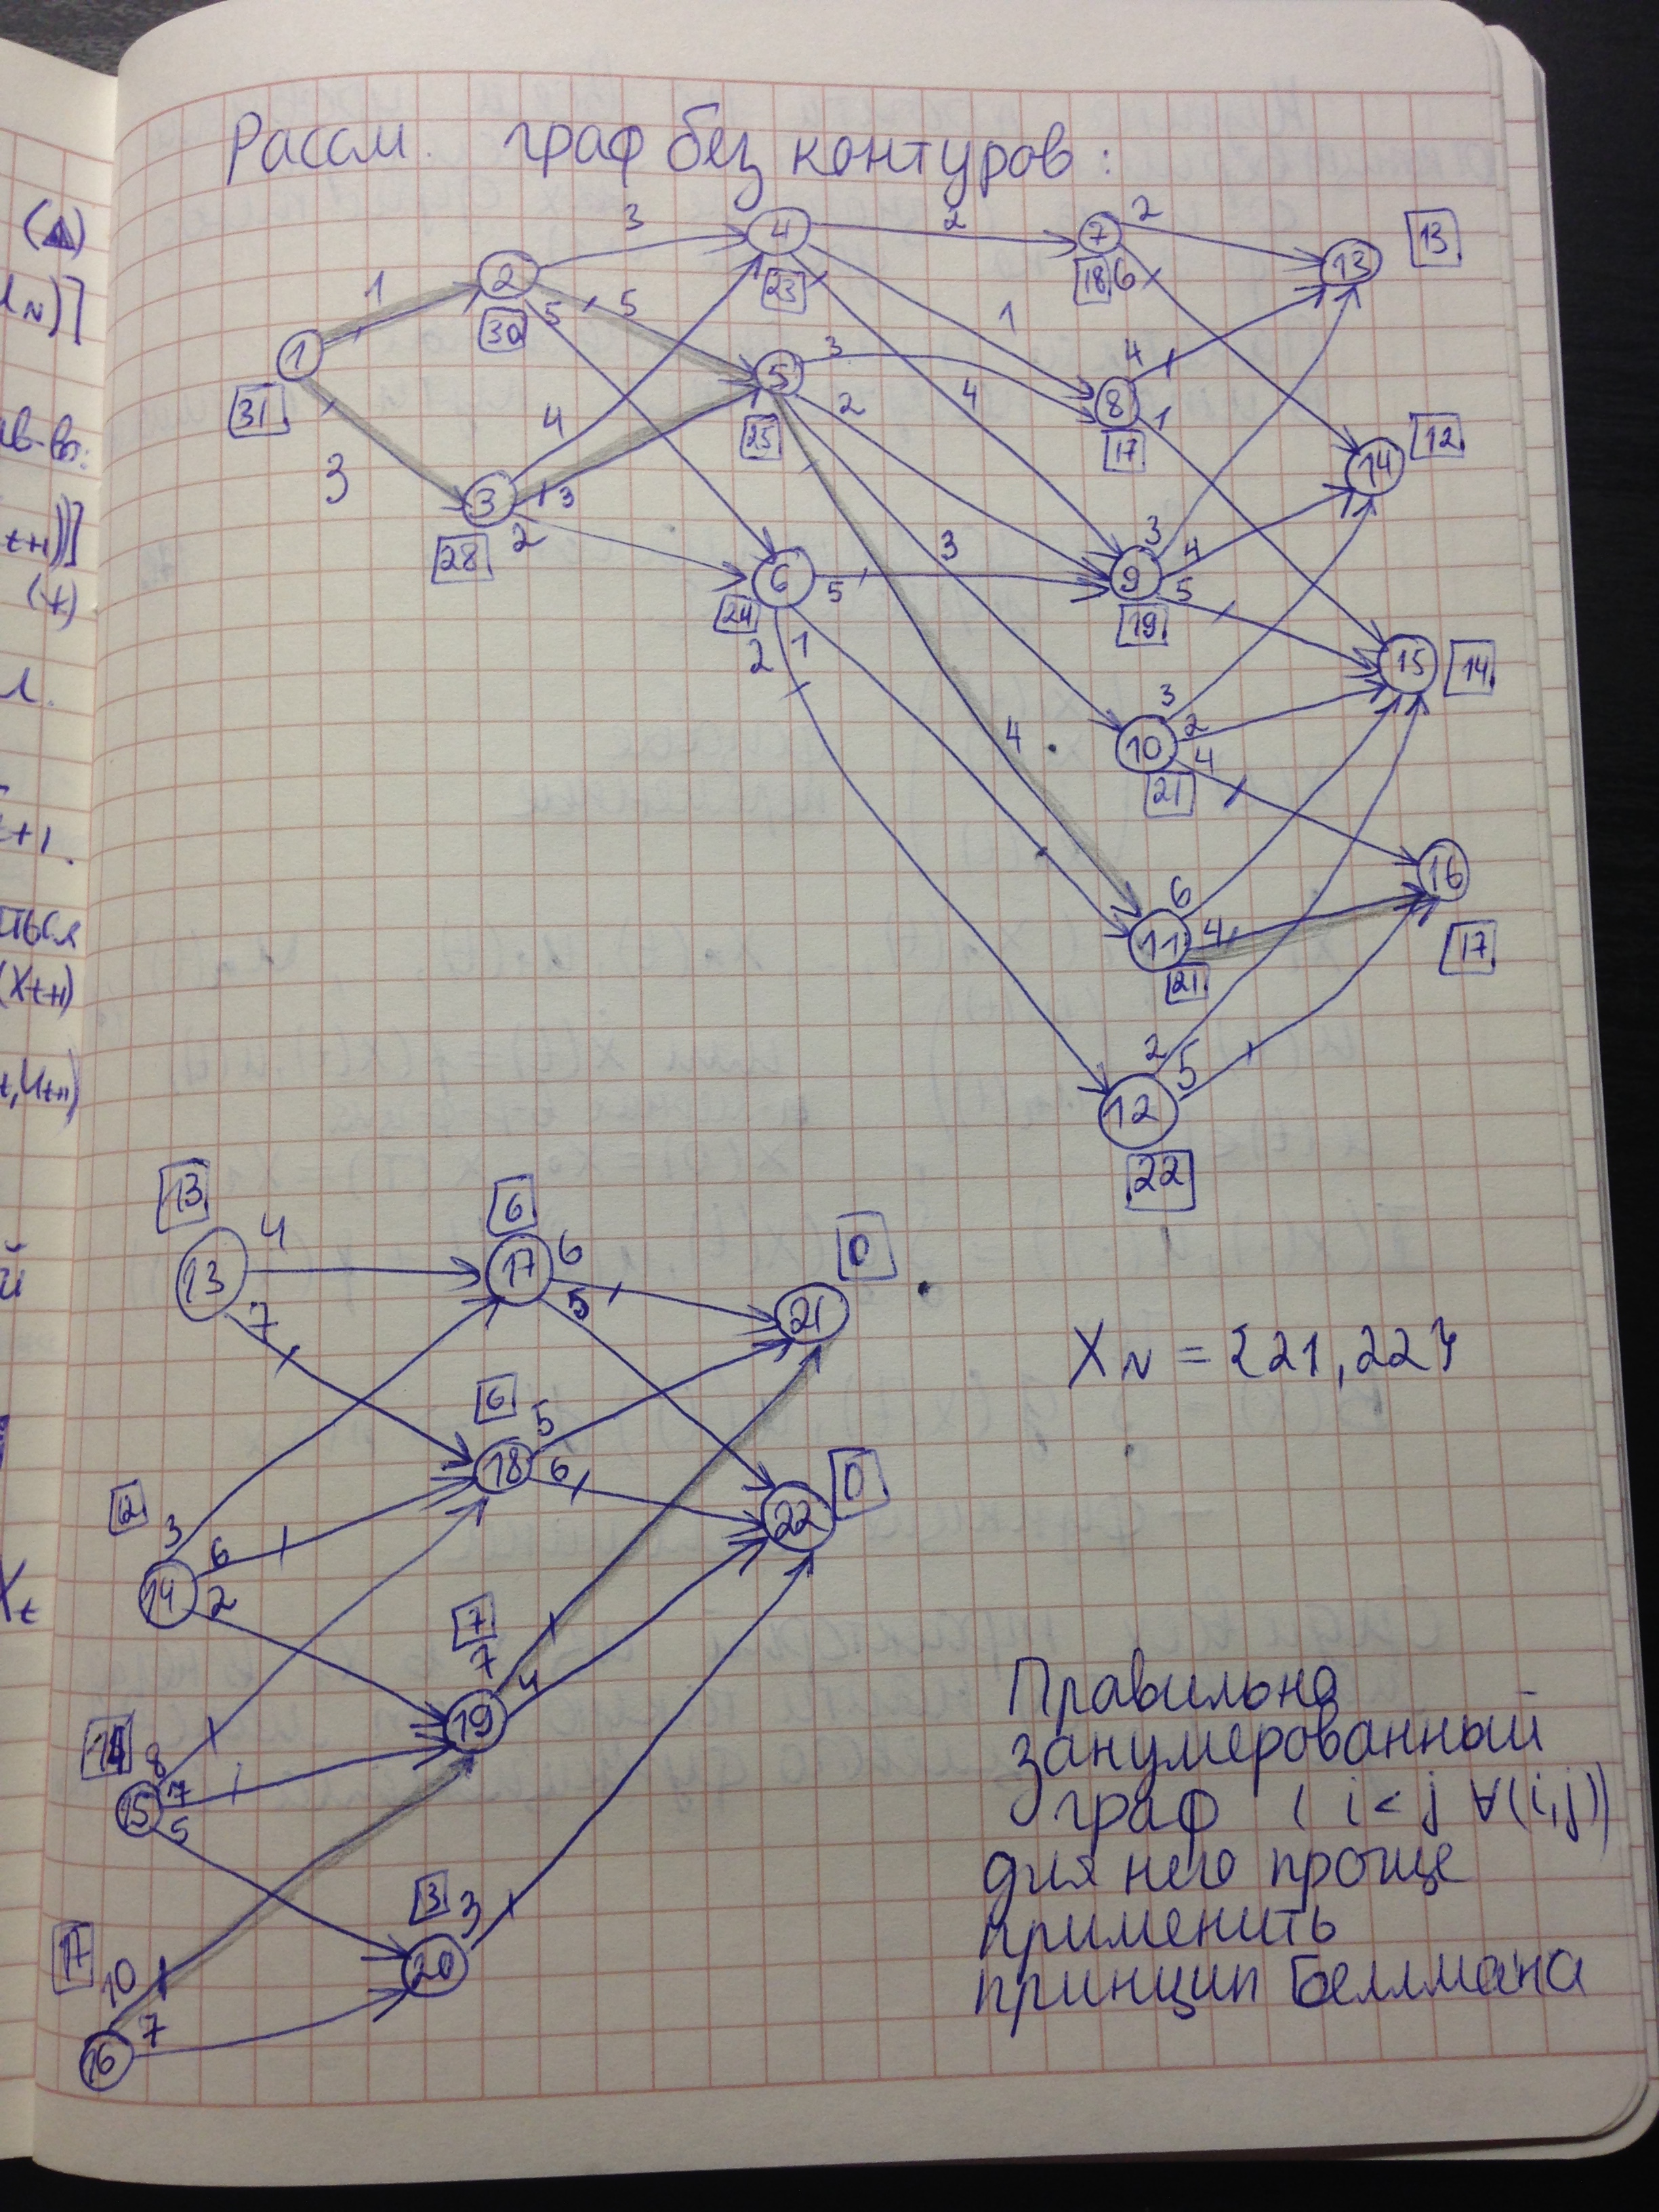 Рассм. граф без контуров:
3 4 2 7 2 13 13
1 2 23 18 6
30 5 5 1
1 5 3 8 4
31 4 25 2 4 17 1 14 12
3 3 3
28 2
6 5 3 9 3 4 5
24 19 15 14
2 1
4 10 3 2 4
21
11 6 4 16
21 17
2 5
12
22
13 6
13 4 17 6 0
7 5 21
6
18 5
6 22 0
3
14 6
2
7
7
19 4
8
15 7
5
3 3
20
17 10
16 7
X N = {21,22}
Правильно
занумерованный
граф ( i < j ∀(i,j))
для него проще
применить
принцип Беллмана
(▲)
N)]
t+1)]
(*)
t+1.
(X t+1)
t, U t+1)
X t